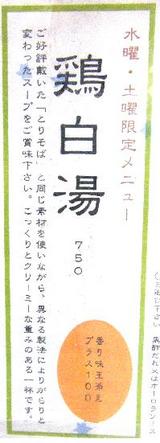 水曜・土曜限定メニュー
鶏白湯
750
香り味玉追加
プラス100
ご好評戴いた「とりそば」と同じ素材を使いながら、異なる製法によりがらりと
変わったスープをご賞味下さい。こっくりとクリーミーな重みのある一杯です。